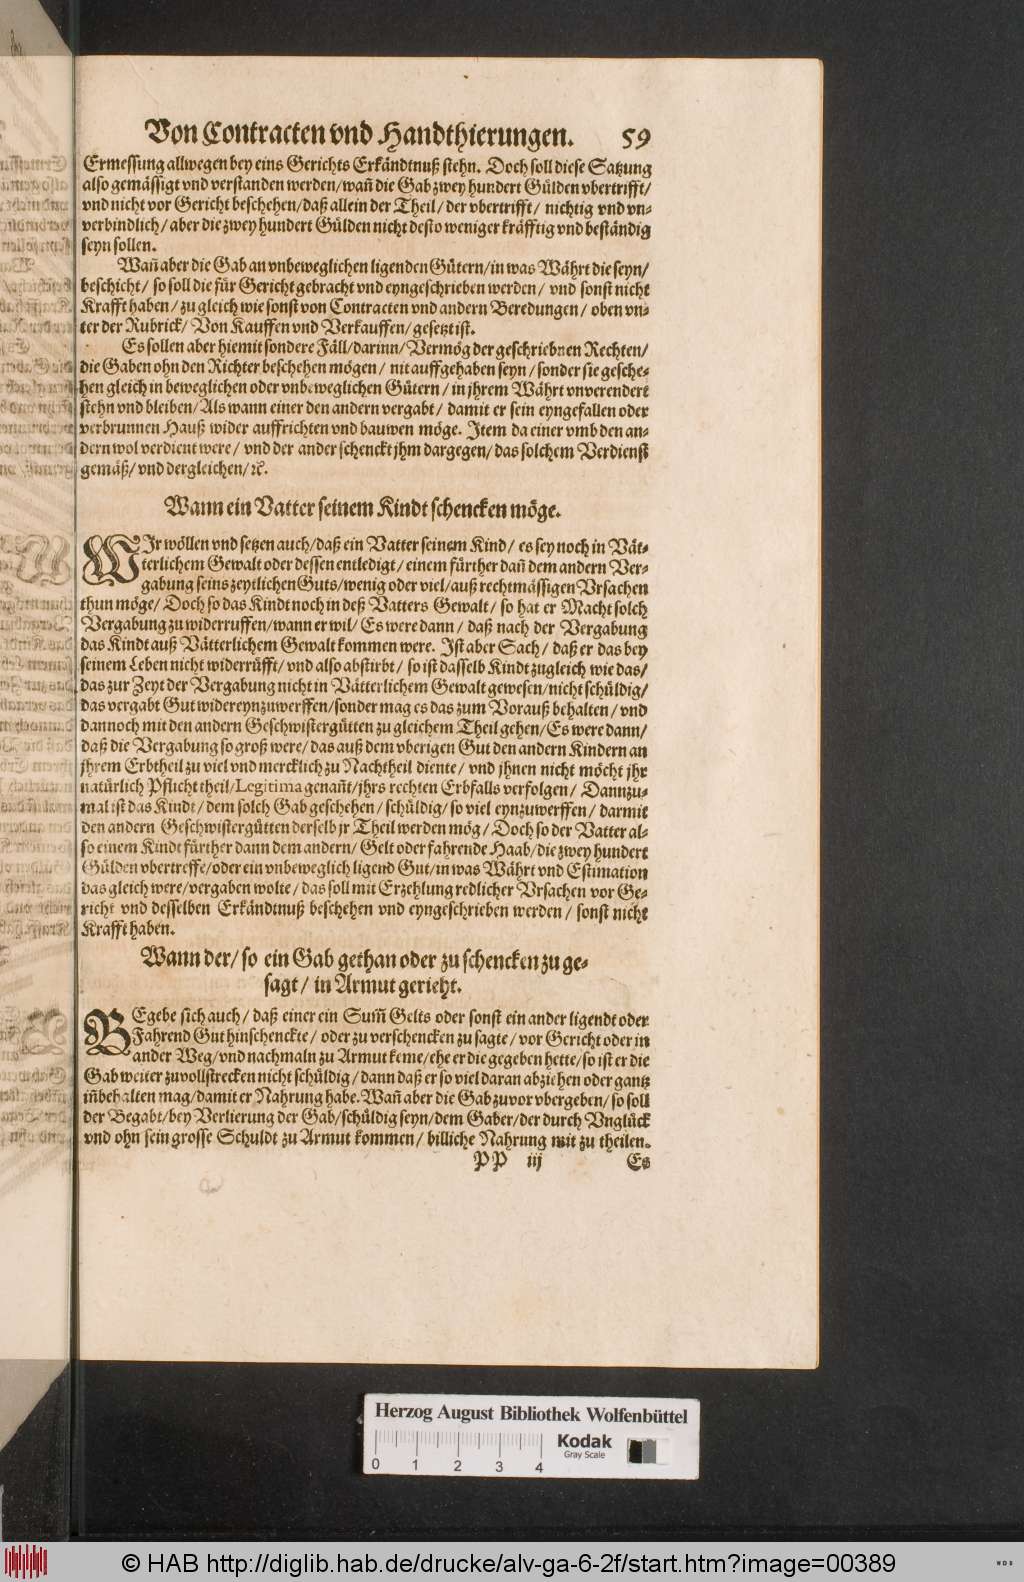 Von Contracten vnd Handthierungen. 59
Ermessung allwegen bey eins Gerichts Erkändtnuß stehn. Doch soll diese Satzung
also gemässigt vnd verstanden werden/wañ die Gab zwey hundert Gülden vbertrifft/
vnd nicht vor Gericht beschehen/daß allein der Theil/der vbertrifft/ nichtig vnd vn-
verbindlich/aber die zwey hundert Gülden nicht desto weniger kräfftig vnd beständig
seyn sollen.
Wañ aber die Gab an vnbeweglichen ligenden Gütern/in was Währt die seyn/
beschicht/ so soll die für Gericht gebracht vnd eyngeschrieben werden/ vnd sonst nicht
Krafft haben/zu gleich wie sonst von Contracten vnd andern Beredungen/ oben vn-
ter der Rubrick/Von Kauffen vnd Verkauffen/gesetzt ist.
Es sollen aber hiemit sondere Fäll/darinn/Vermög der geschriebnen Rechten/
die Gaben ohn den Richter beschehen mögen/ nit auffgehaben seyn/sonder sie gesche-
hen gleich in beweglichen oder vnbeweglichen Gütern/in jhrem Währt vnverendert
stehn vnd bleiben/Als wann einer den andern vergabt/ damit er sein eyngefallen oder
verbrunnen Hauß wider auffrichten vnd bauwen möge. Item da einer vmb den an-
dern wol verdient were/ vnd der ander schenckt jhm dargegen/das solchem Verdienst
gemäß/vnd dergleichen/ꝛc.
Wann ein Vatter seinem Kindt schencken möge.
WIr wöllen vnd setzen auch/daß ein Vatter seinem Kind/ es sey noch in Vät-
terlichem Gewalt oder dessen entledigt/einem fürther dañ dem andern Ver-
gabung seins zeytlichen Guts/wenig oder viel/auß rechtmässigen Vrsachen
thun möge/ Doch so das Kindt noch in deß Vatters Gewalt/ so hat er Macht solch
Vergabung zu widerruffen/wann er wil/ Es were dann/ daß nach der Vergabung
das Kindt auß Vätterlichem Gewalt kommen were. Ist aber Sach/ daß er das bey
seinem Leben nicht widerrüfft/vnd also abstirbt/ so ist dasselb Kindt zugleich wie das/
das zur Zeyt der Vergabung nicht in Vätterlichem Gewalt gewesen/nicht schüldig/
das vergabt Gut widereynzuwerffen/sonder mag es das zum Vorauß behalten/ vnd
dannoch mit den andern Geschwistergütten zu gleichem Theil gehen/Es were dann/
daß die Vergabung so groß were/das auß dem vberigen Gut den andern Kindern an
jhrem Erbtheil zu viel vnd mercklich zu Nachtheil diente/ vnd jhnen nicht möcht jhr
natürlich Pflicht theil/Legitima genañt/jhrs rechten Erbfalls verfolgen/ Dannzu-
mal ist das Kindt/dem solch Gab geschehen/ schüldig/so viel eynzuwerffen/ darmit
den andern Geschwistergütten derselb jr Theil werden mög/ Doch so der Vatter al-
so einem Kindt fürther dann dem andern/ Gelt oder fahrende Haab/die zwey hundert
Gülden vbertreffe/oder ein vnbeweglich ligend Gut/in was Währt vnd Estimation
das gleich were/vergaben wolte/das soll mit Erzehlung redlicher Vrsachen vor Ge-
richt vnd desselben Erkändtnuß beschehen vnd eyngeschrieben werden/ sonst nicht
Krafft haben.
Wann der/so ein Gab gethan oder zu schencken zu ge-
sagt/ in Armut gerieht.
BEgebe sich auch/ daß einer ein Sum̃ Gelts oder sonst ein ander ligendt oder
Fahrend Gut hinschenckte/ oder zu verschencken zu sagte/ vor Gericht oder in
ander Weg/vnd nachmaln zu Armut keme/ehe er die gegeben hette/so ist er die
Gab weiter zuvollstrecken nicht schüldig/dann daß er so viel daran abziehen oder gantz
iñbehalten mag/damit er Nahrung habe. Wañ aber die Gab zuvor vbergeben/so soll
der Begabt/bey Verlierung der Gab/schüldig seyn/dem Gaber/der durch Vnglück
vnd ohn sein grosse Schuldt zu Armut kommen/ billiche Nahrung mit zu theilen.
PP iij Es
Herzog August Bibliothek Wolfenbüttel
Kodak
Gray Scale
0 1 2 3 4
© HAB http://diglib.hab.de/drucke/alv-ga-6-2f/start.htm?image=00389